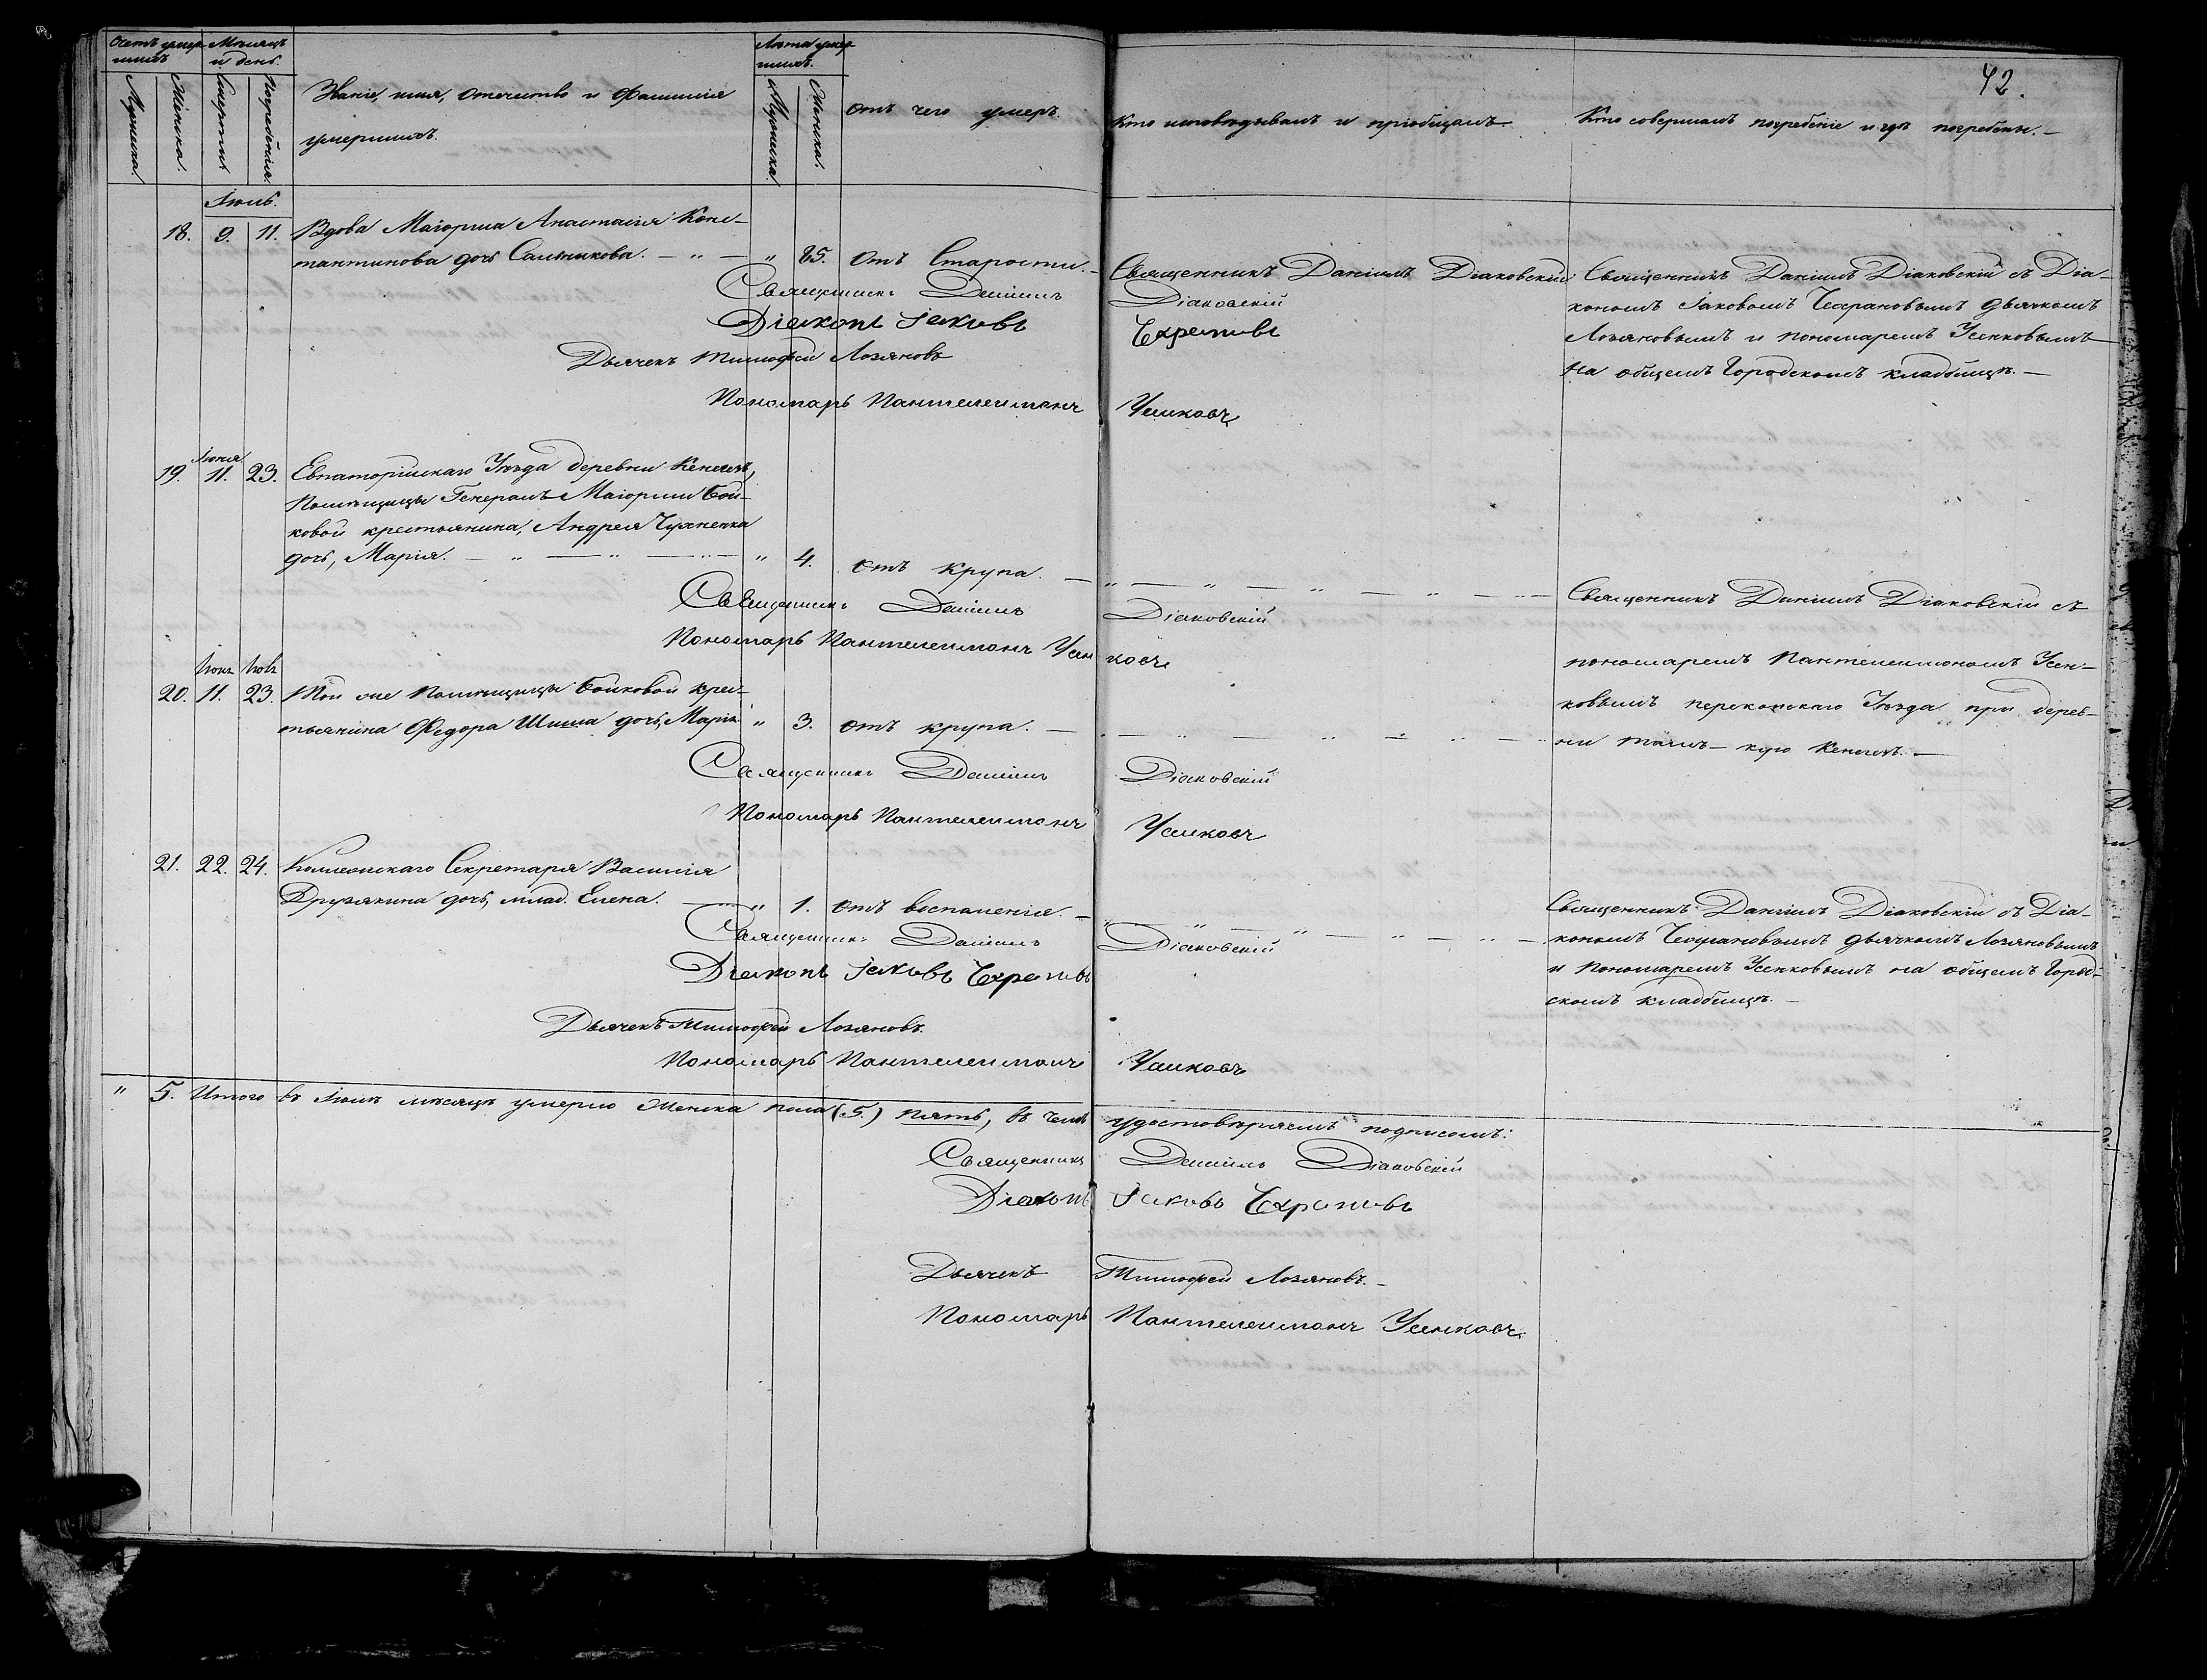 42.
Счетъ умер-
шихъ
Мѣсяцъ
и день.
Званіе, имя, отечество и фамилія
умершихъ.
Лѣта умер-
шихъ.
Отъ чего умеръ.
Кто исповѣдывалъ и пріобщалъ.
Кто совершалъ погребеніе и гдѣ погребены. —
Мужска.
Женска.
Смерти
Погребенія.
Мужска.
Женска.
Іюль.
18. 9. 11. Вдова Маіорша Анастасія Конс-
тантинова дочь Сальникова. — „ — „ 85. Отъ Старости. —
Священникъ Даніилъ Діаковскій
Священникъ Даніилъ Діаковскій съ Діа-
кономъ Іаковомъ Чехрановымъ дьячкомъ
Лозяновымъ и пономаремъ Усенковымъ
на общемъ Городскомъ кладбищѣ. —
Священникъ Даніилъ Діаковскій
Діаконъ Іаковъ Чехрановъ
Дьячекъ Тимофей Лозяновъ
Пономарь Пантелеимонъ Усенковъ
Іюня
19. 11. 23. Евпаторійскаго Уѣзда деревни Кенегезъ,
Помѣщицы Генералъ-Маіорши Бой-
ковой крестьянина, Андрея Чухненка
дочь, Марія. — „ — „ — „ 4. Отъ крупа. —
Священникъ Даніилъ Діаковскій
Пономарь Пантелеимонъ Усенковъ
Священникъ Даніилъ Діаковскій съ
пономаремъ Пантелеимономъ Усен-
ковымъ перекопскаго Уѣзда при дерев-
ни Кенегезъ. —
20. 11. 23. Той же Помѣщицы Бойковой крес-
тьянина Федора Шиша дочь, Марія „ 3. Отъ крупа. —
Священникъ Даніилъ Діаковскій
Пономарь Пантелеимонъ Усенковъ
21. 22. 24. Коллежскаго Секретаря Василія
Дружякина дочь, млад. Елена. — „ 1. Отъ воспаленія. —
Священникъ Даніилъ Діаковскій съ Діа-
кономъ Чехрановымъ дьячкомъ Лозяновымъ
и Пономаремъ Усенковымъ на общемъ Город-
скомъ кладбищѣ. —
Священникъ Даніилъ Діаковскій
Діаконъ Іаковъ Чехрановъ
Дьячекъ Тимофей Лозяновъ.
Пономарь Пантелеимонъ Усенковъ
„ 5. Итого въ Іюлѣ мѣсяцѣ умерло Женска пола (5.) пять, въ чемъ удостовѣряемъ подписомъ:
Священникъ Даніилъ Діаковскій
Діаконъ Іаковъ Чехрановъ
Дьячекъ Тимофей Лозяновъ. —
Пономарь Пантелеимонъ Усенковъ.